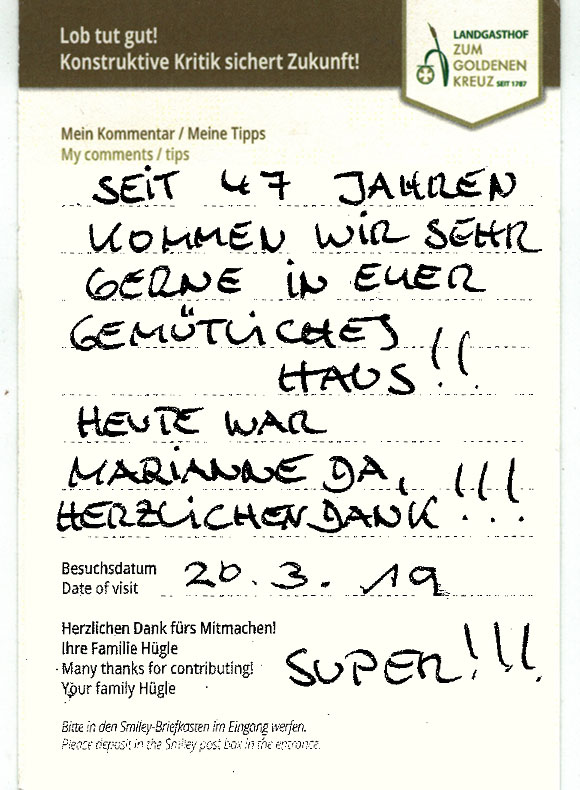 Lob tut gut!
Konstruktive Kritik sichert Zukunft!
LANDGASTHOF
ZUM
GOLDENEN
KREUZ SEIT 1787
Mein Kommentar / Meine Tipps
My comments / tips
SEIT 47 JAHREN
KOMMEN WIR SEHR
GERNE IN EUER
GEMÜTLICHES
HAUS!!
HEUTE WAR
MARIANNE DA,
HERZLICHEN DANK!!!
Besuchsdatum
Date of visit
20.3.19
Herzlichen Dank fürs Mitmachen!
Ihre Familie Hügle
Many thanks for contributing!
Your family Hügle
SUPER!!!
Bitte in den Smiley-Briefkasten im Eingang werfen.
Please deposit in the Smiley post box in the entrance.